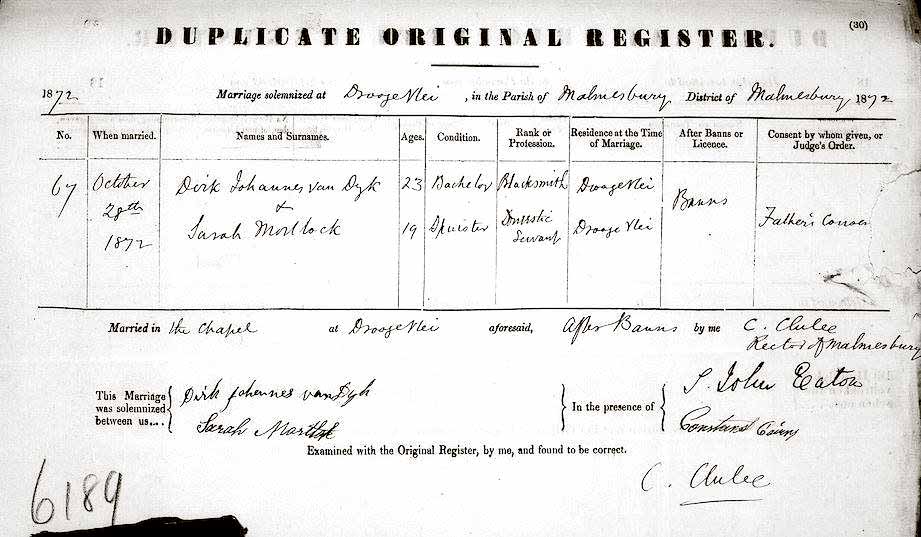 (30)
DUPLICATE ORIGINAL REGISTER.
1872 Marriage solemnized at Drooge Vlei, in the Parish of Malmesbury District of Malmesbury 1872
No. When married. Names and Surnames. Ages. Condition. Rank or Profession. Residence at the Time of Marriage. After Banns or Licence. Consent by whom given, or Judge's Order.
67 October 28th 1872
Dirk Johannes van Dyk 23 Bachelor Blacksmith Drooge Vlei
&
Sarah Mortlock 19 Spinster Domestic Servant Drooge Vlei
Banns
Father's Consen
Married in the Chapel at Drooge Vlei aforesaid, After Banns by me C. Clulee
Rector of Malmesbury
This Marriage was solemnized between us...
Dirk Johannes van Dyk
Sarah
In the presence of
S. John Eaton
Examined with the Original Register, by me, and found to be correct.
C. Clulee
6189